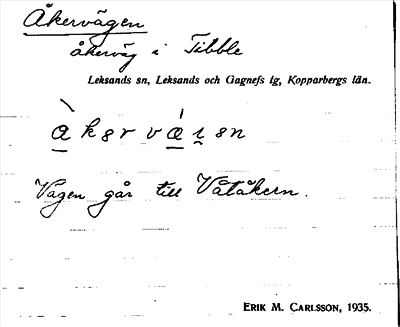 Åkervägen
åkerväg i Tibble
Leksands sn, Leksands och Gagnefs tg, Kopparbergs län.
Vägen går till Våtåkern.
ERIK M. CARLSSON, 1935.